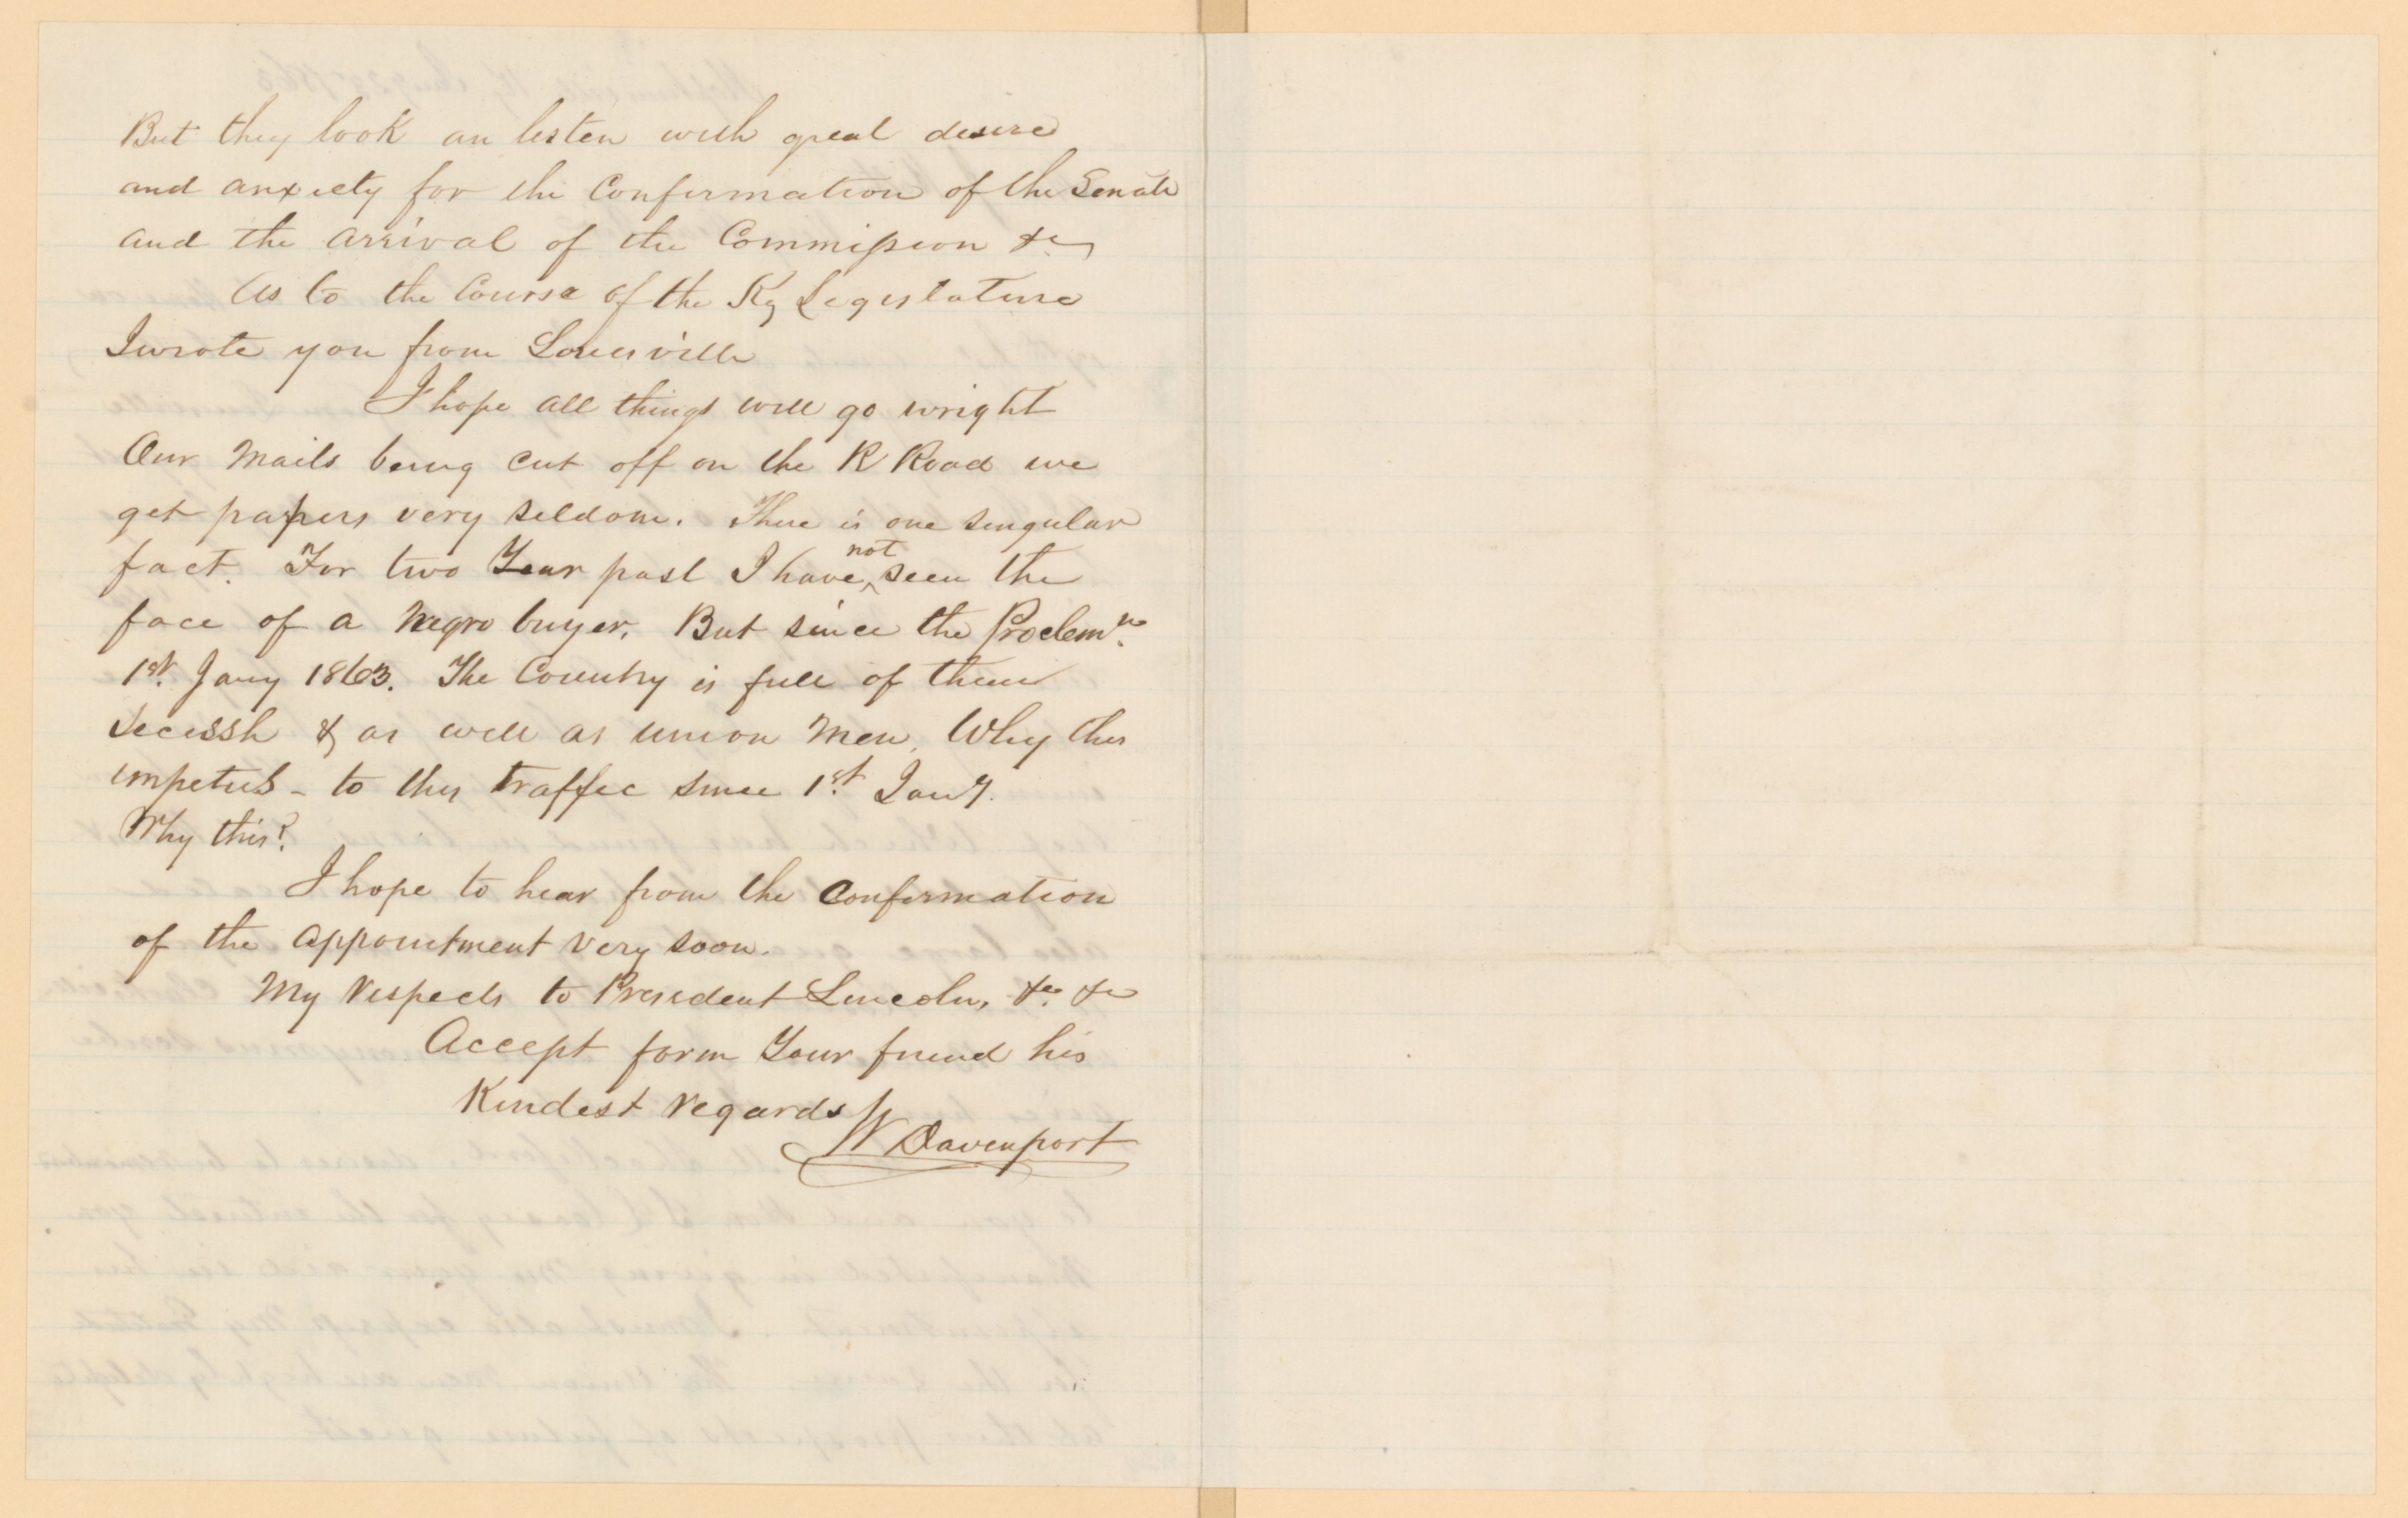 But they look an listen with great desire
and anxiety for the Confirmation of the Senate
and the arrival of the Commission &c,
As to the Course of the Ky Legislature
I wrote you from Louisville
I hope all things will go wright
Our Mails being cut off on the R Road we
get papers very seldom. There is one singular
fact. For two Year past I have not seen the
face of a Negro buyer. But since the Proclemn.
1st. Jany 1863. The Country is full of them
Secessh & as well as union Men. Why this
impetus - to this traffic since 1st. Jany.
Why this?
I hope to hear from the Confirmation
of the appointment very soon.
My respects to President Lincoln, &c. &c
Accept form Your friend his
Kindest regards
W Davenport